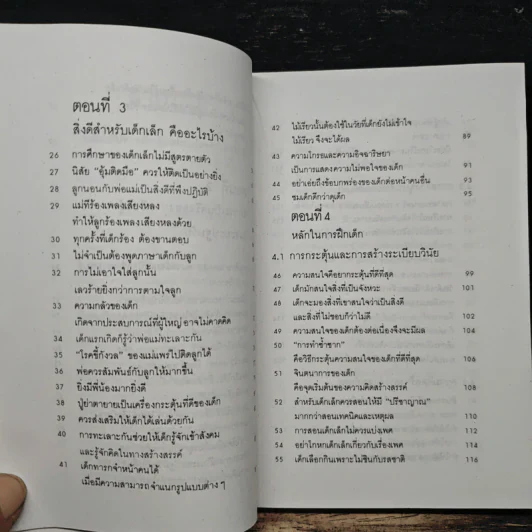 ตอนที่ 3
สิ่งดีสำหรับเด็กเล็ก คืออะไรบ้าง
26 การศึกษาของเด็กเล็กไม่มีสูตรตายตัว
27 นิสัย "อุ้มติดมือ" ควรให้ติดเป็นอย่างยิ่ง
28 ลูกนอนกับพ่อแม่เป็นสิ่งดีที่พึงปฏิบัติ
29 แม่ที่ร้องเพลงเสียงหลง
ทำให้ลูกร้องเพลงเสียงหลงด้วย
30 ทุกครั้งที่เด็กร้อง ต้องขานตอบ
31 ไม่จำเป็นต้องพูดภาษาเด็กกับลูก
32 การไม่เอาใจใส่ลูกนั้น
เลวร้ายยิ่งกว่าการตามใจลูก
33 ความกลัวของเด็ก
เกิดจากประสบการณ์ที่ผู้ใหญ่อาจไม่คาดคิด
34 เด็กแรกเกิดก็รู้ว่าพ่อแม่ทะเลาะกัน
35 "โรคขี้กังวล" ของแม่แพร่ไปติดลูกได้
36 พ่อควรสัมพันธ์กับลูกให้มากขึ้น
37 ยิ่งมีพี่น้องมากยิ่งดี
38 ปู่ย่าตายายเป็นเครื่องกระตุ้นที่ดีของเด็ก
39 ควรส่งเสริมให้เด็กได้เล่นด้วยกัน
40 การทะเลาะกันช่วยให้เด็กรู้จักเข้าสังคม
และรู้จักคิดในทางสร้างสรรค์
41 เด็กทารกจำหน้าคนได้
เมื่อมีความสามารถจำแนกรูปแบบต่าง ๆ
42 ไม้เรียวนั้นต้องใช้ในวัยที่เด็กยังไม่เข้าใจ
ไม้เรียว จึงจะได้ผล 89
43 ความโกรธและความอิจฉาริษยา
เป็นการแสดงความไม่พอใจของเด็ก 91
44 อย่าเอ่ยถึงข้อบกพร่องของเด็กต่อหน้าคนอื่น 93
45 ชมเด็กดีกว่าดุเด็ก 95
ตอนที่ 4
หลักในการฝึกเด็ก
4.1 การกระตุ้นและการสร้างระเบียบวินัย
46 ความสนใจคือยากระตุ้นที่ดีที่สุด 99
47 เด็กมักสนใจสิ่งที่เป็นจังหวะ 102
48 เด็กจะมองสิ่งที่เขาสนใจว่าเป็นสิ่งดี
และสิ่งที่ไม่ชอบก็ว่าไม่ดี 102
49 ความสนใจของเด็กต้องต่อเนื่องจึงจะมีผล 104
50 "การทำซ้ำซาก"
คือวิธีกระตุ้นความสนใจของเด็กที่ดีที่สุด 106
51 จินตนาการของเด็ก
คือจุดเริ่มต้นของความคิดสร้างสรรค์ 108
52 สำหรับเด็กเล็กควรสอนให้มี "ปรีชาญาณ"
มากกว่าสอนเทคนิคและเหตุผล 110
53 การสอนเด็กเล็กไม่ควรแบ่งเพศ 112
54 อย่าโกหกเด็กเล็กเกี่ยวกับเรื่องเพศ 114
55 เด็กเลือกกินเพราะไม่ชินกับรสชาติ 116